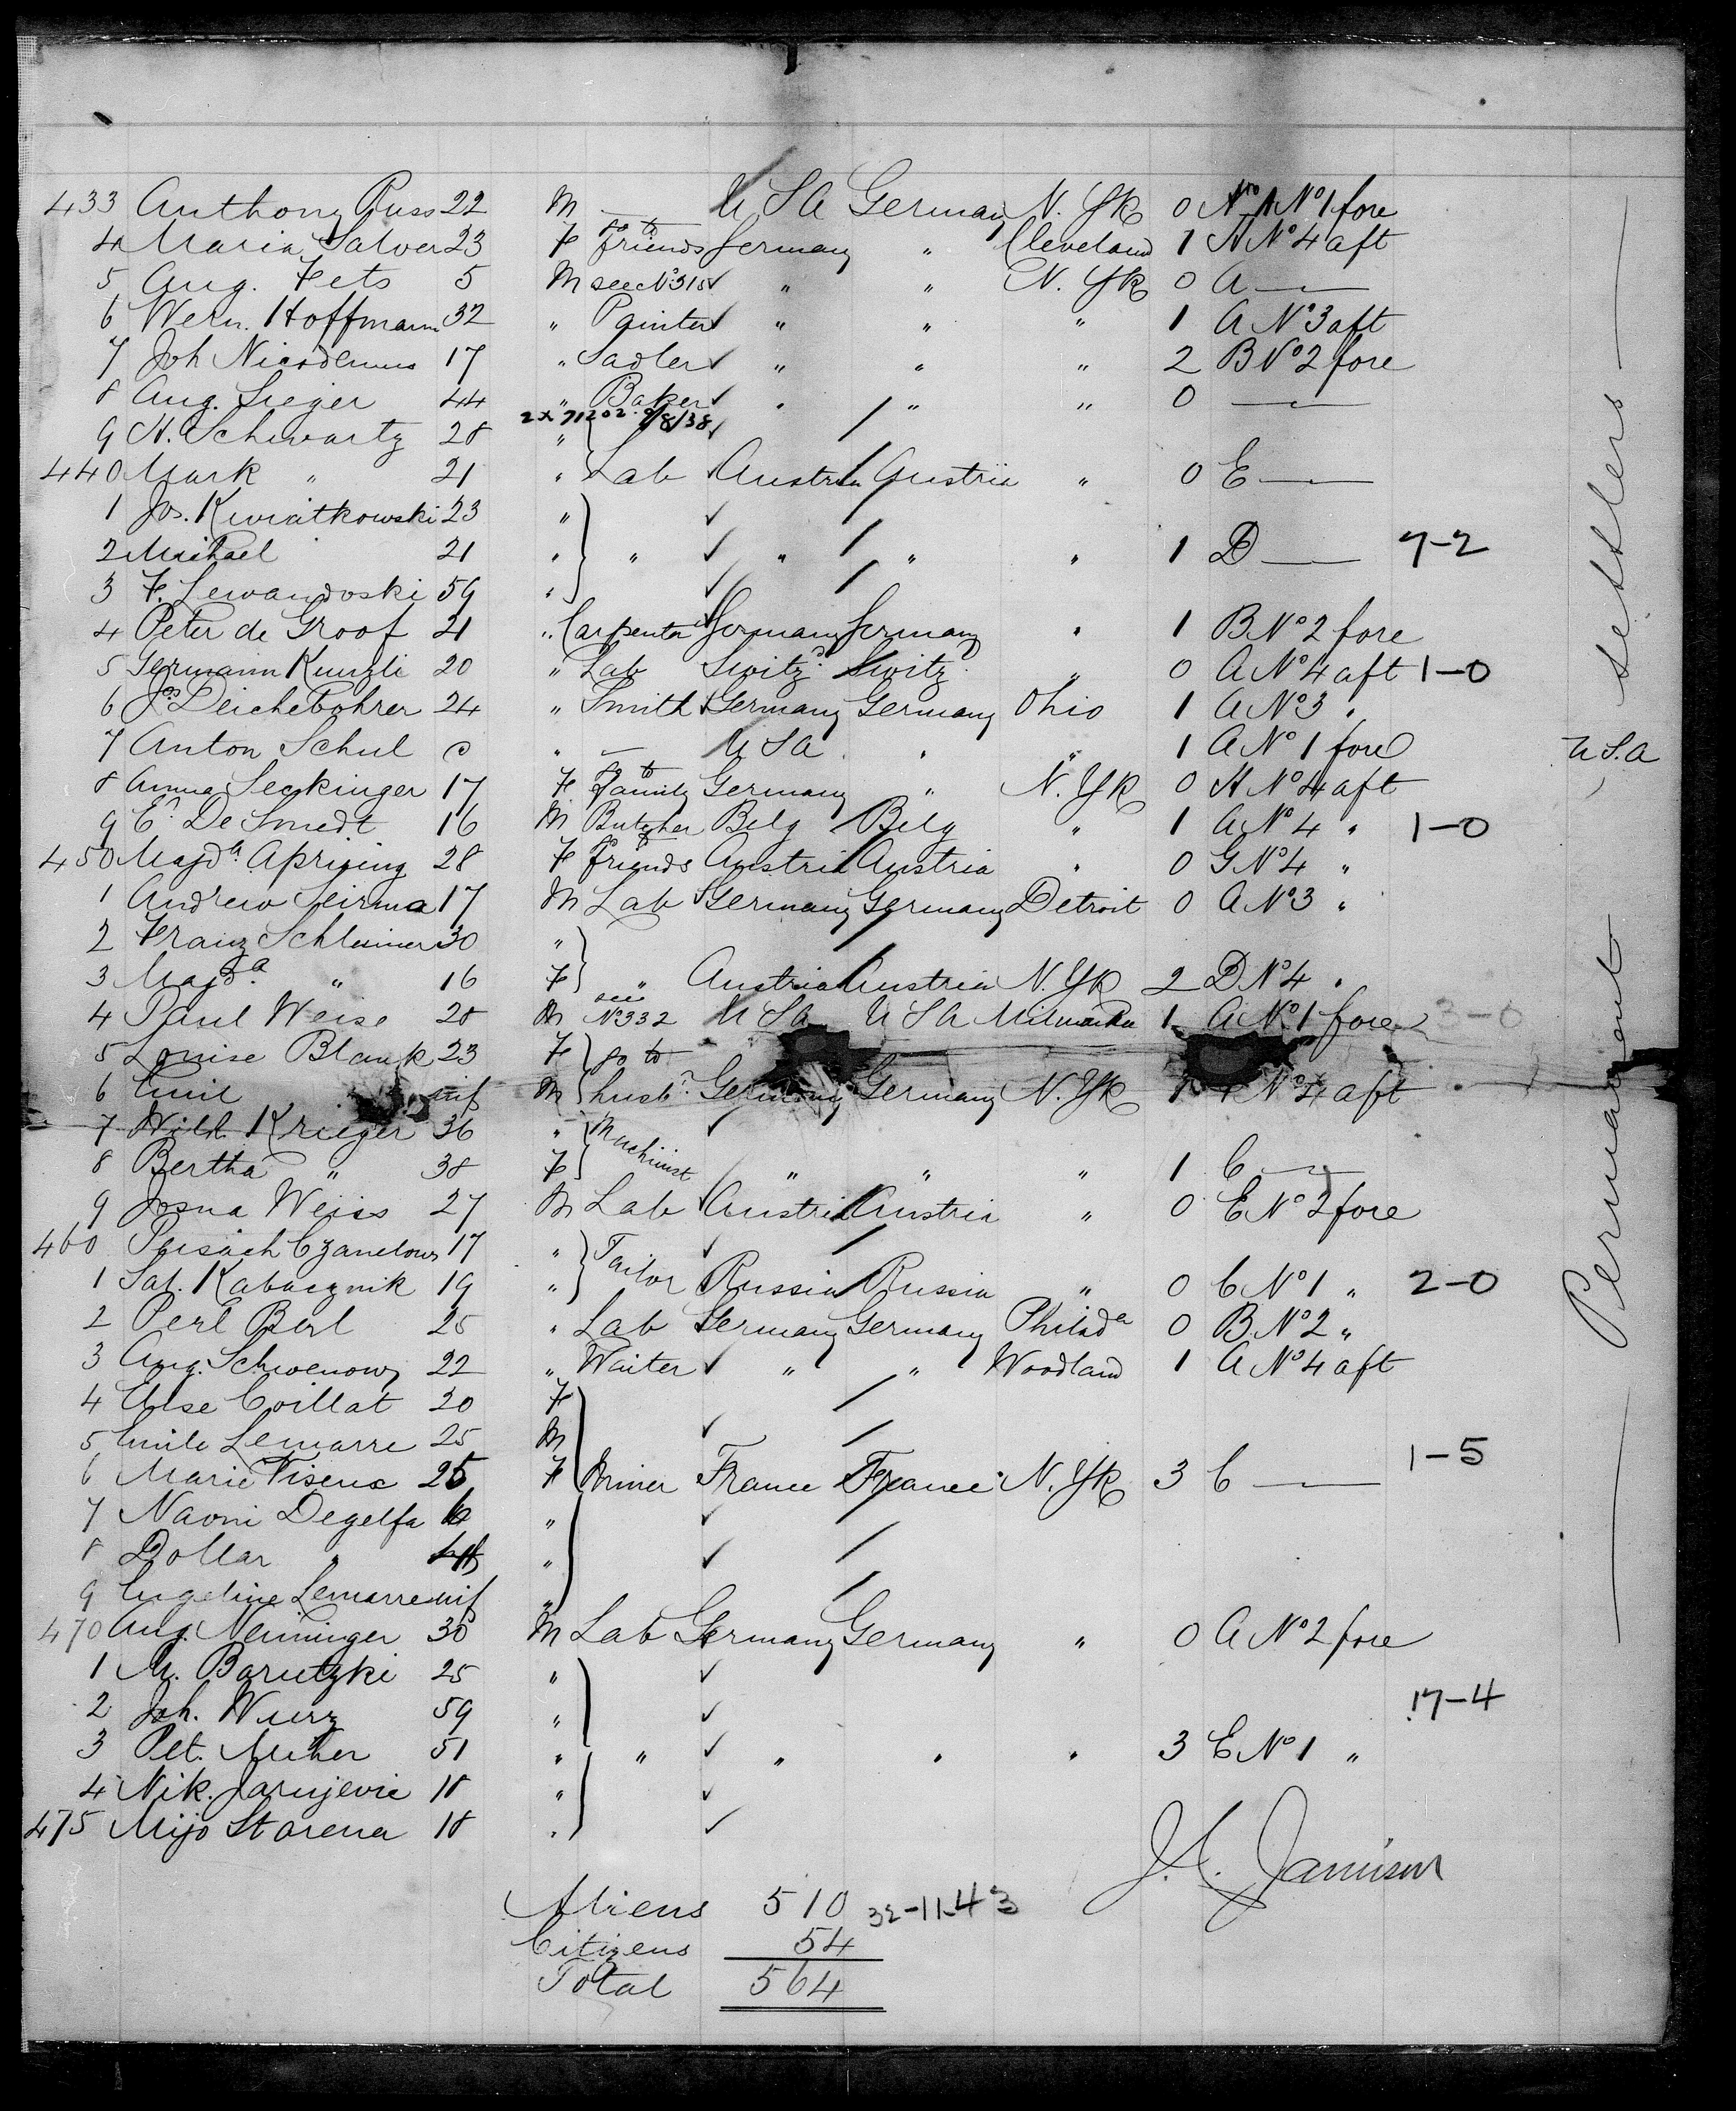 433 Anthony Russ 22 M — U S A Germany N. Yk 0 No 1 No 1 fore
4 Maria Salver 23 F go to friends Germany " Cleveland 1 H No 4 aft
5 Aug. Fets 5 M see No 315 " " N. Yk 0 A —
6 Wern. Hoffmann 32 " Painter " " " 1 A No 3 aft
7 Joh Nicodemus 17 " Sadler " " " 2 B No 2 fore
8 Aug. Sieger 44 " Baker " " " 0 —
2x 71202. 9/8/38
9 H. Schwartz 28 "
440 Mark " 21 " Lab Austria Austria " 0 E —
1 Jos. Kwiatkowski 23 "
2 Michael 21 " " " " " 1 D — 7-2
3 F. Lewandoski 59 "
4 Peter de Groof 21 " Carpenter Germany Germany " 1 B No 2 fore
5 Germann Kunzli 20 " Lab Switzd Switzd " 0 A No 4 aft 1-0
6 Jos Deichebohrer 24 " Smith Germany Germany Ohio 1 A No 3 "
7 Anton Schul " — U S A " " 1 A No 1 fore
8 Anna Seckinger 17 F go to family Germany " N. Yk 0 H No 4 aft
9 E. De Smedt 16 M Butcher Belg Belg " 1 A No 4 " 1-0
450 Magda Apriging 28 F go to friends Austria Austria " 0 G No 4 "
1 Andrew Seirma 17 M Lab Germany Germany Detroit 0 A No 3 "
2 Franz Schleimer 30 "
3 Magda " 16 F " Austria Austria N. Yk 2 D No 4 "
4 Paul Weise 28 M see No 332 U S A U S A Milwaukee 1 A No 1 fore 3-0
5 Louise Blank 23 F go to
6 Emil inf M husbd Germany Germany N. Yk 1 No 4 aft
7 Wilh. Krieger 36 " Machinist
8 Bertha " 38 F " " " 1 C —
9 Josua Weiss 27 M Lab Austria Austria " 0 E No 2 fore
460 Peisach Czanelows 17 " Tailor
1 Sal. Kabacznik 19 " Russia Russia " 0 C No 1 " 2-0
2 Perl Berl 25 " Lab Germany Germany Philada 0 B No 2 "
3 Aug. Schwenow 22 " Waiter " " Woodland 1 A No 4 aft
4 Else Coillat 20 F
5 Emile Lemarre 25 M
6 Marie Viseux 25 F Miner France France N. Yk 3 C — 1-5
7 Naomi Degelfa "
8 Dollar " "
9 Engeline Lemarre inf "
470 Aug. Neininger 30 M Lab Germany Germany " 0 A No 2 fore
1 M. Barutzki 25 "
2 Joh. Wurz 59 " 17-4
3 Pet. Miher 51 " " " " " 3 E No 1 "
4 Nik. Jarnjevic 18 "
475 Mijo Starena 18 "
J. A. Jamison
Aliens 510 32-11-43
Citizens 54
Total 564
— Permanent settlers —
U S. A